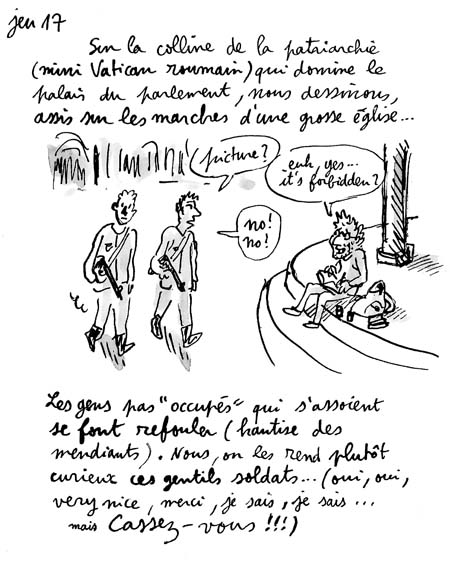 jeu 17
Sur la colline de la patriarchie
(mini Vatican roumain) qui domine le
palais du parlement, nous dessinons,
assis sur les marches d'une grosse église...
picture?
euh, yes...
it's forbidden?
no!
no!
Les gens pas "occupés" qui s'assoient
se font refouler (hantise des
mendiants). Nous, on les rend plutôt
curieux ces gentils soldats... (oui, oui,
very nice, merci, je sais, je sais...
mais Cassez-vous!!!)